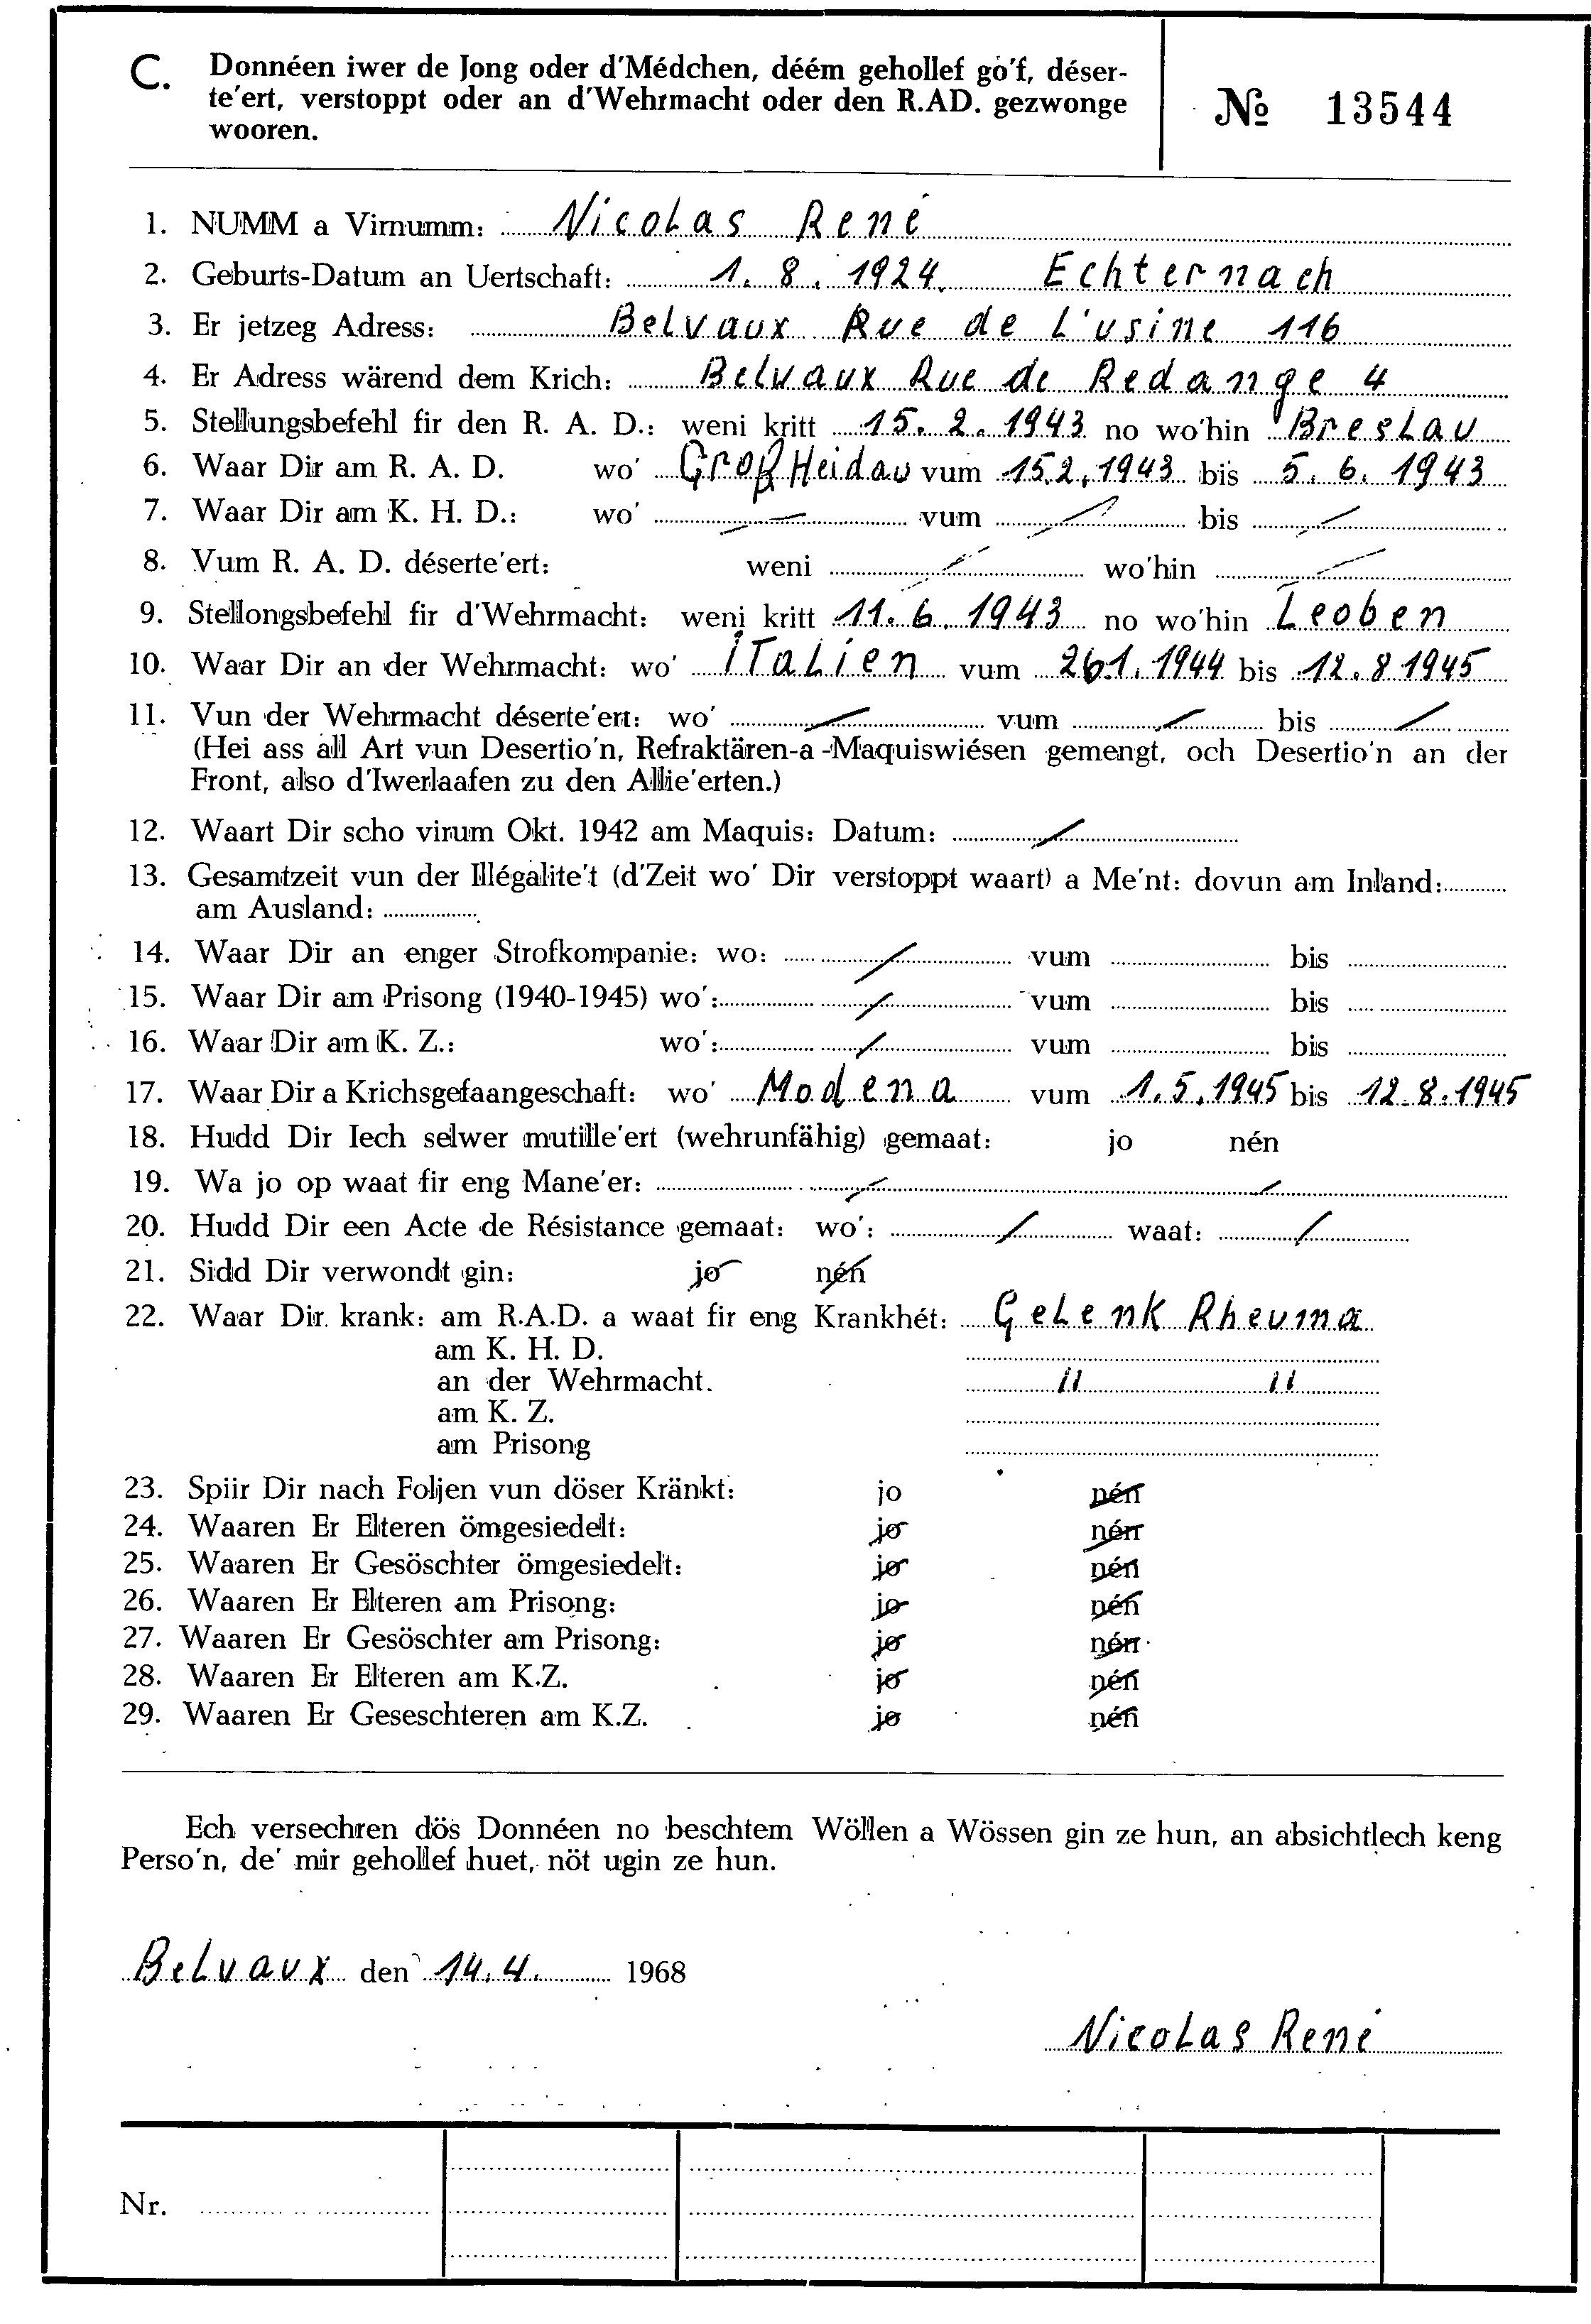 C. Donnéen iwer de Jong oder d'Médchen, déém gehollef go'f, déser-
te'ert, verstoppt oder an d'Wehrmacht oder den R.AD. gezwonge
wooren.
№ 13544
1. NUMM a Virnumm: Nicolas René
2. Geburts-Datum an Uertschaft: 1. 8. 1924. Echternach
3. Er jetzeg Adress: Belvaux Rue de L'usine 116
4. Er Adress wärend dem Krich: Belvaux Rue de Redange 4
5. Stellungsbefehl fir den R. A. D.: weni kritt 15. 2. 1943 no wo'hin Breslau
6. Waar Dir am R. A. D. wo' Groß Heidau vum 15.2.1943 bis 5. 6. 1943
7. Waar Dir am K. H. D.: wo' vum bis
8. Vum R. A. D. déserte'ert: weni wo'hin
9. Stellongsbefehl fir d'Wehrmacht: weni kritt 11. 6. 1943 no wo'hin Leoben
10. Waar Dir an der Wehrmacht: wo' iTaLien vum 26.1.1944 bis 12.8 1945
11. Vun der Wehrmacht déserte'ert: wo' vum bis
(Hei ass all Art vun Desertio'n, Refraktären-a -Maquiswiésen gemengt, och Desertio'n an der
Front, also d'Iwerlaafen zu den Allie'erten.)
12. Waart Dir scho virum Okt. 1942 am Maquis: Datum:
13. Gesamtzeit vun der Illégalite't (d'Zeit wo' Dir verstoppt waart) a Me'nt: dovun am Inland:
am Ausland:
14. Waar Dir an enger Strofkompanie: wo: vum bis
15. Waar Dir am Prisong (1940-1945) wo': vum bis
16. Waar Dir am K. Z.: wo': vum bis
17. Waar Dir a Krichsgefaangeschaft: wo' Modena vum 1.5.1945 bis 12.8.1945
18. Hudd Dir Iech selwer mutille'ert (wehrunfähig) gemaat: jo nén
19. Wa jo op waat fir eng Mane'er:
20. Hudd Dir een Acte de Résistance gemaat: wo': waat:
21. Sidd Dir verwondt gin: jo nén
22. Waar Dir krank: am R.A.D. a waat fir eng Krankhét: Gelenk Rheuma
am K. H. D.
an der Wehrmacht. " "
am K. Z.
am Prisong
23. Spiir Dir nach Foljen vun döser Kränkt: jo nén
24. Waaren Er Elteren ömgesiedelt: jo nén
25. Waaren Er Gesöschter ömgesiedelt: jo nén
26. Waaren Er Elteren am Prisong: jo nén
27. Waaren Er Gesöschter am Prisong: jo nén
28. Waaren Er Elteren am K.Z. jo nén
29. Waaren Er Geseschteren am K.Z. jo nén
Ech versechren dös Donnéen no beschtem Wöllen a Wössen gin ze hun, an absichtlech keng
Perso'n, de' mir gehollef huet, nöt ugin ze hun.
Belvaux den 14.4. 1968
Nicolas René
Nr.